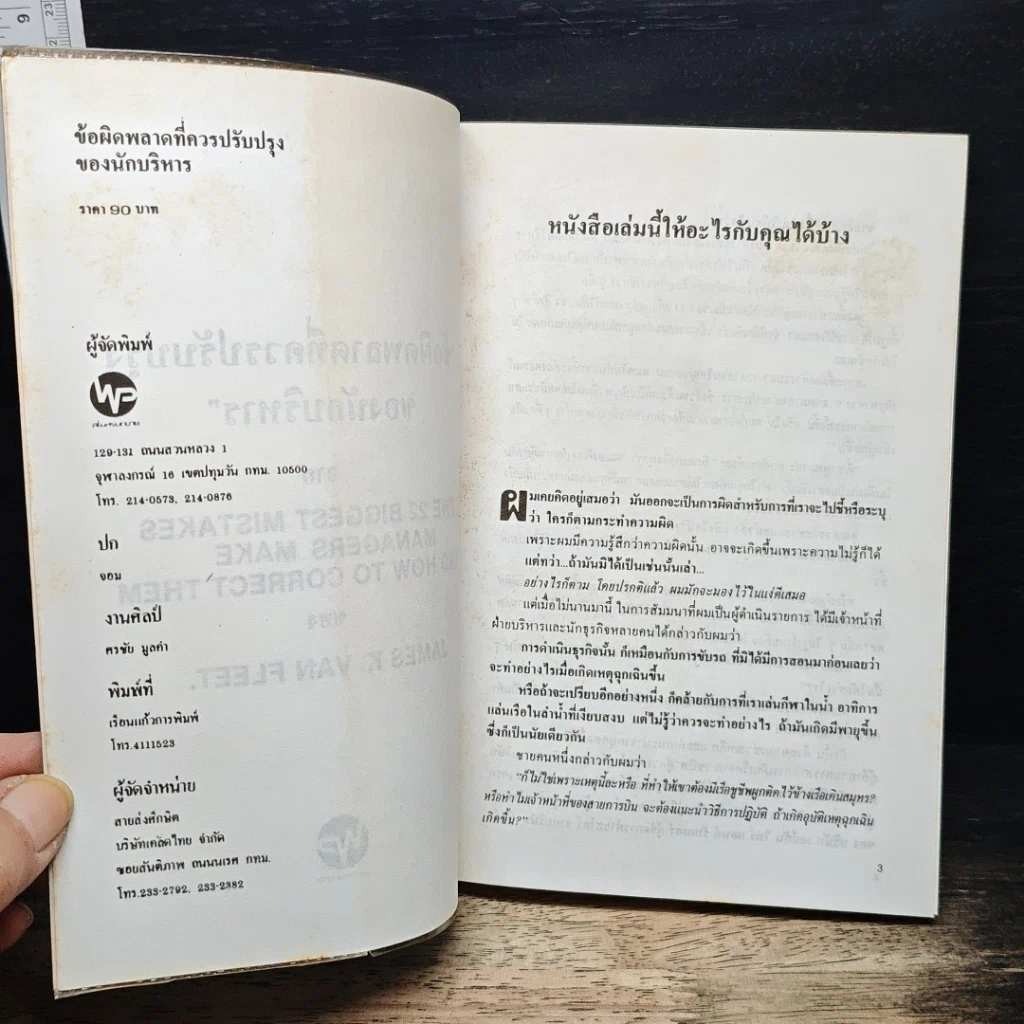 ข้อผิดพลาดที่ควรปรับปรุง
ของนักบริหาร
ราคา 90 บาท
ผู้จัดพิมพ์
WP
129-131 ถนนสวนหลวง 1
จุฬาลงกรณ์ 16 เขตปทุมวัน กทม. 10500
โทร. 214-0573, 214-0876
ปก
จอม
งานศิลป์
ศรชัย มูลคำ
พิมพ์ที่
เรือนแก้วการพิมพ์
โทร.4111523
ผู้จัดจำหน่าย
สายส่งศึกษิต
บริษัทเคล็ดไทย จำกัด
ซอยสันติภาพ ถนนนเรศ กทม.
โทร.233-2792, 233-2382
หนังสือเล่มนี้ให้อะไรกับคุณได้บ้าง
ผมเคยคิดอยู่เสมอว่า มันออกจะเป็นการผิดสำหรับการที่เราจะไปชี้หรือระบุ
ว่า ใครก็ตามกระทำความผิด
เพราะผมมีความรู้สึกว่าความผิดนั้น อาจจะเกิดขึ้นเพราะความไม่รู้ก็ได้
แต่ทว่า...ถ้ามันมิได้เป็นเช่นนั้นเล่า...
อย่างไรก็ตาม โดยปรกติแล้ว ผมมักจะมองไว้ในแง่ดีเสมอ
แต่เมื่อไม่นานมานี้ ในการสัมมนาที่ผมเป็นผู้ดำเนินรายการ ได้มีเจ้าหน้าที่
ฝ่ายบริหารและนักธุรกิจหลายคนได้กล่าวกับผมว่า
การดำเนินธุรกิจนั้น ก็เหมือนกับการขับรถ ที่มิได้มีการสอนมาก่อนเลยว่า
จะทำอย่างไรเมื่อเกิดเหตุฉุกเฉินขึ้น
หรือถ้าจะเปรียบอีกอย่างหนึ่ง ก็คล้ายกับการที่เราเล่นกีฬาในน้ำ อาทิการ
แล่นเรือในลำน้ำที่เงียบสงบ แต่ไม่รู้ว่าควรจะทำอย่างไร ถ้ามันเกิดมีพายุขึ้น
ซึ่งก็เป็นนัยเดียวกัน
ชายคนหนึ่งกล่าวกับผมว่า
"ก็ไม่ใช่เพราะเหตุนี้ละหรือ ที่ทำให้เขาต้องมีเรือชูชีพผูกติดไว้ข้างเรือเดินสมุทร?
หรือทำไมเจ้าหน้าที่ของสายการบิน จะต้องแนะนำวิธีการปฏิบัติ ถ้าเกิดอุบัติเหตุฉุกเฉิน
เกิดขึ้น?"
3